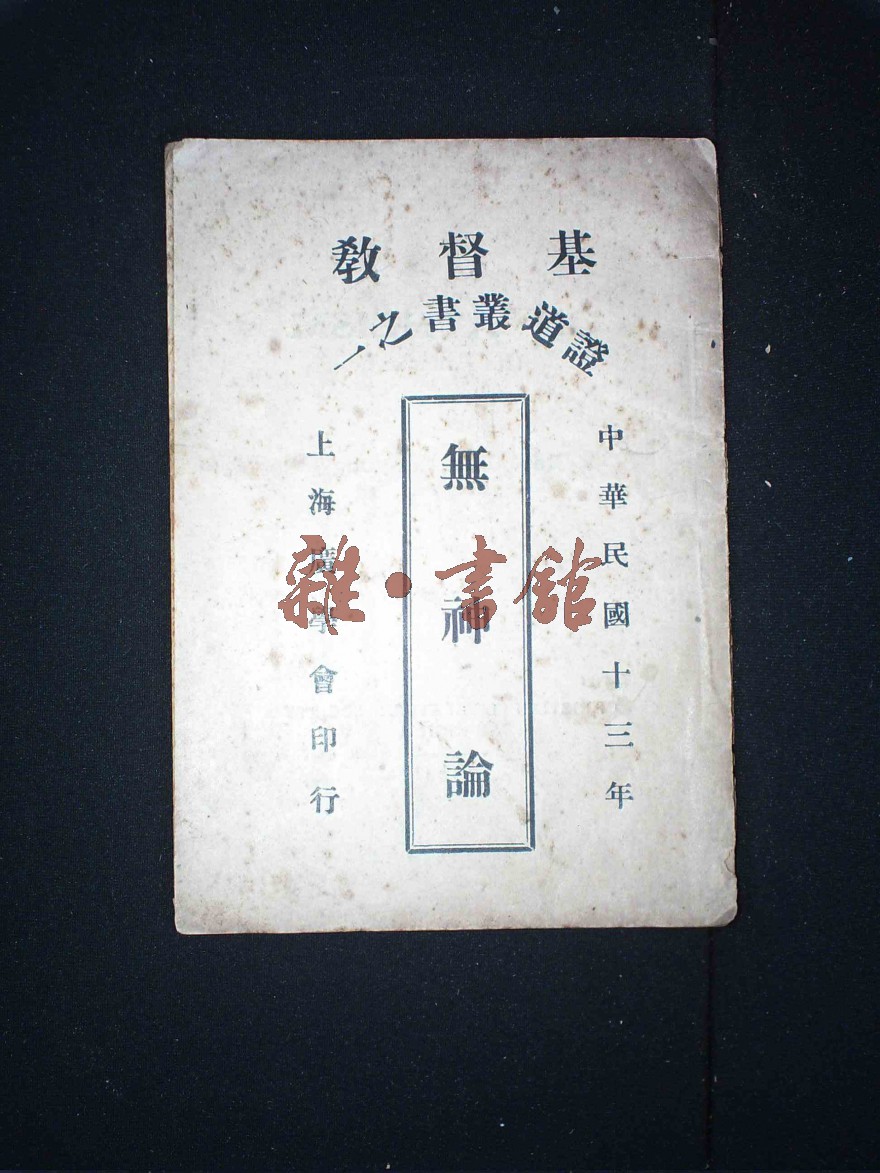 基督教
證道叢書之一
中華民國十三年
無神論
上海廣學會印行
雜·書館